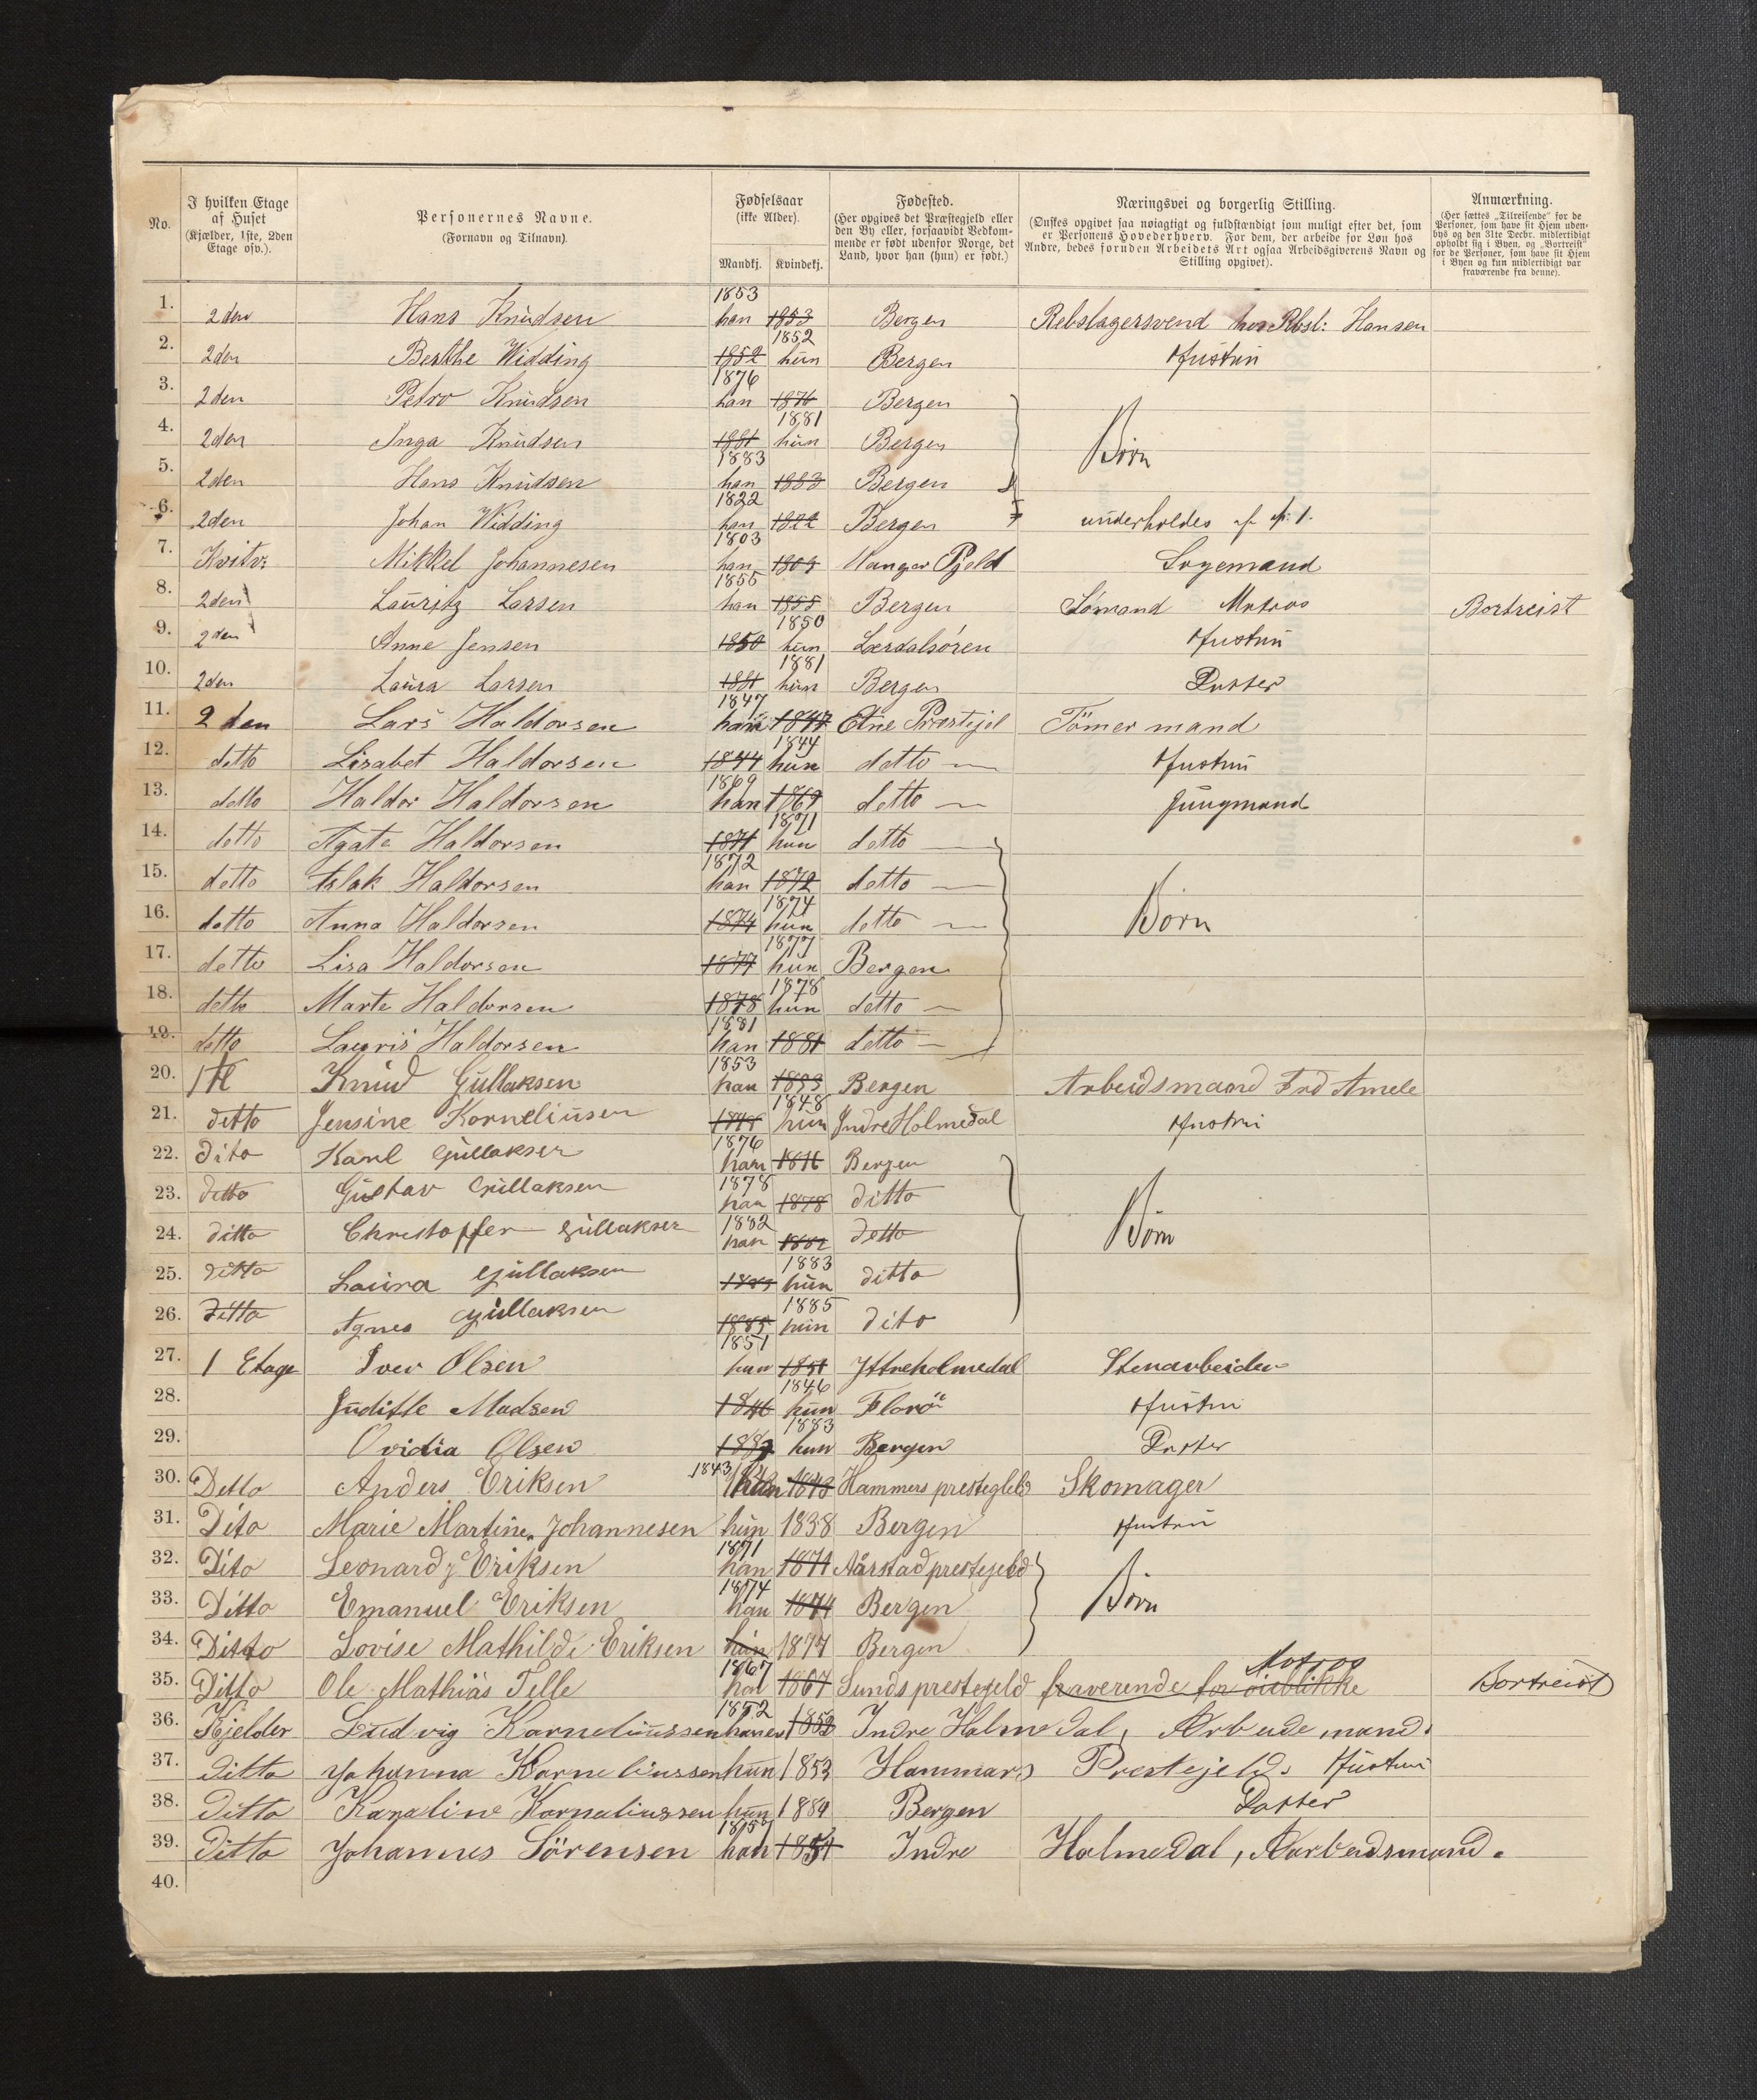 No.
I hvilken Etage
af Huset
(Kjælder, 1ste, 2den
Etage osv.).
Personernes Navne.
(Fornavn og Tilnavn).
Fødselsaar
(ikke Alder).
Mandkj. Kvindekj.
Fødested.
(Her opgives det Præstegjeld eller
den By eller, forsaavidt Vedkom-
mende er født udenfor Norge, det
Land, hvor han (hun) er født.)
Næringsvei og borgerlig Stilling.
(Ønskes opgivet saa nøiagtigt og fuldstændigt som muligt efter det, som
er Personens Hovederhverv. For dem, der arbeide for Løn hos
Andre, bedes foruden Arbeidets Art ogsaa Arbeidsgiverens Navn og
Stilling opgivet).
Anmærkning.
(Her sættes „Tilreisende“ for de
Personer, som have sit Hjem uden-
bys og den 31te Decbr. midlertidigt
opholdt sig i Byen, og „Bortreist“
for de Personer, som have sit Hjem
i Byen og kun midlertidigt var
fraværende fra denne).
1. 2den Hans Knudsen 1853 han 1853 Bergen Rebslagersvend hos Rbsl: Hansen
2. 2den Berthe Widding 1852 1852 hun Bergen Hustru
3. 2den Petro Knudsen 1876 han 1876 Bergen
4. 2den Inga Knudsen 1881 1881 hun Bergen Börn
5. 2den Hans Knudsen 1883 han 1883 Bergen
6. 2den Johan Widding 1822 han 1822 Bergen underholdes af No 1.
7. Kvitv: Mikkel Johannesen 1803 han 1803 Manger Pjeld Logemand
8. 2den Lauritz Larsen 1855 han 1855 Bergen Sömand Matros Bortreist
9. 2den Anne Jensen 1850 1850 hun Lærdalsören Hustru
10. 2den Laura Larsen 1881 1881 hun Bergen Datter
11. 2den Lars Haldorsen 1847 han 1847 Etne Præstejel Tömermand
12. detto Lisabet Haldorsen 1844 1844 hun detto Hustru
13. detto Haldor Haldorsen 1869 han 1869 detto Jungmand
14. detto Agate Haldorsen 1871 1871 hun detto
15. detto Aslak Haldorsen 1872 han 1872 detto
16. detto Anna Haldorsen 1874 1874 hun detto Börn
17. detto Lisa Haldorsen 1877 1877 hun Bergen
18. detto Marte Haldorsen 1878 1878 hun detto
19. detto Lauris Haldorsen 1881 han 1881 detto
20. 1st Knud Gullaksen 1853 han 1853 Bergen Arbeidsmand Frd Amele
21. ditto Jensine Korneliusen 1848 1848 hun Indre Holmedal Hustru
22. Dito Karl Gullaksen 1876 han 1876 Bergen
23. ditto Gustav Gullaksen 1878 han 1878 ditto
24. ditto Christoffer Gullaksen 1882 han 1882 ditto Börn
25. ditto Laura Gullaksen 1883 1883 hun ditto
26. ditto Agnes Gullaksen 1885 1885 hun dito
27. 1 Etage Iver Olsen 1851 han 1851 Yttreholmedal Stenarbeider
28. Judithe Madsen 1846 1846 hun Florö Hustru
29. Ovidia Olsen 1883 1883 hun Bergen Datter
30. Detto Anders Eriksen 1843 han 1843 Hammers prestegleld Skomager
31. Dito Marie Martine Johannesen hun 1838 Bergen Hustru
32. Dito Leonardz Eriksen 1871 han 1871 Aårstad prestegeld
33. Ditto Emanuel Eriksen 1874 han 1874 Bergen Börn
34. Ditto Lovise Mathilde Eriksen hun 1877 Bergen
Matros
35. Ditto Ole Mathias Telle 1867 han 1867 Sunds prestegeld fraverende for oieblikke Bortreist
36. Kjelder Ludvig Korneliussen 1852 1852 Indre Holmedal, Arbeidemand.
37. Ditto Johanna Korneliussen hun 1853 Hammars Prestejeld. Hustru
38. Ditto Karaline Kornaliussen hun 1884 Bergen Datter
39. Ditto Johannes Sörensen 1857 han 1857 Indre Holmedal, Aarbeidsmand.
40.